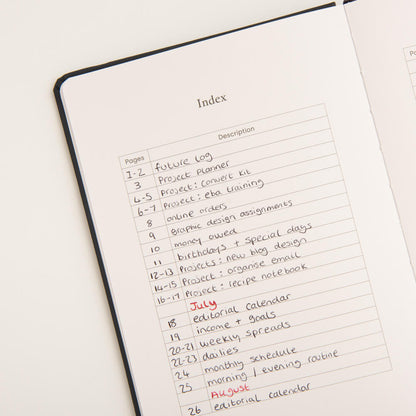 Index
Pages Description
1-2 future log
3 Project Planner
4-5 Project: Convert Kit
6-7 Project: eba training
8 online orders
9 Graphic design assignments
10 money owed
11 birthdays + special days
12-13 Projects: new blog design
14-15 Project: organise email
16-17 Project: recipe notebook
July
18 editorial calendar
19 income + goals
20-21 weekly spreads
22-23 dailies
24 monthly schedule
25 morning / evening routine
August
26 editorial calendar